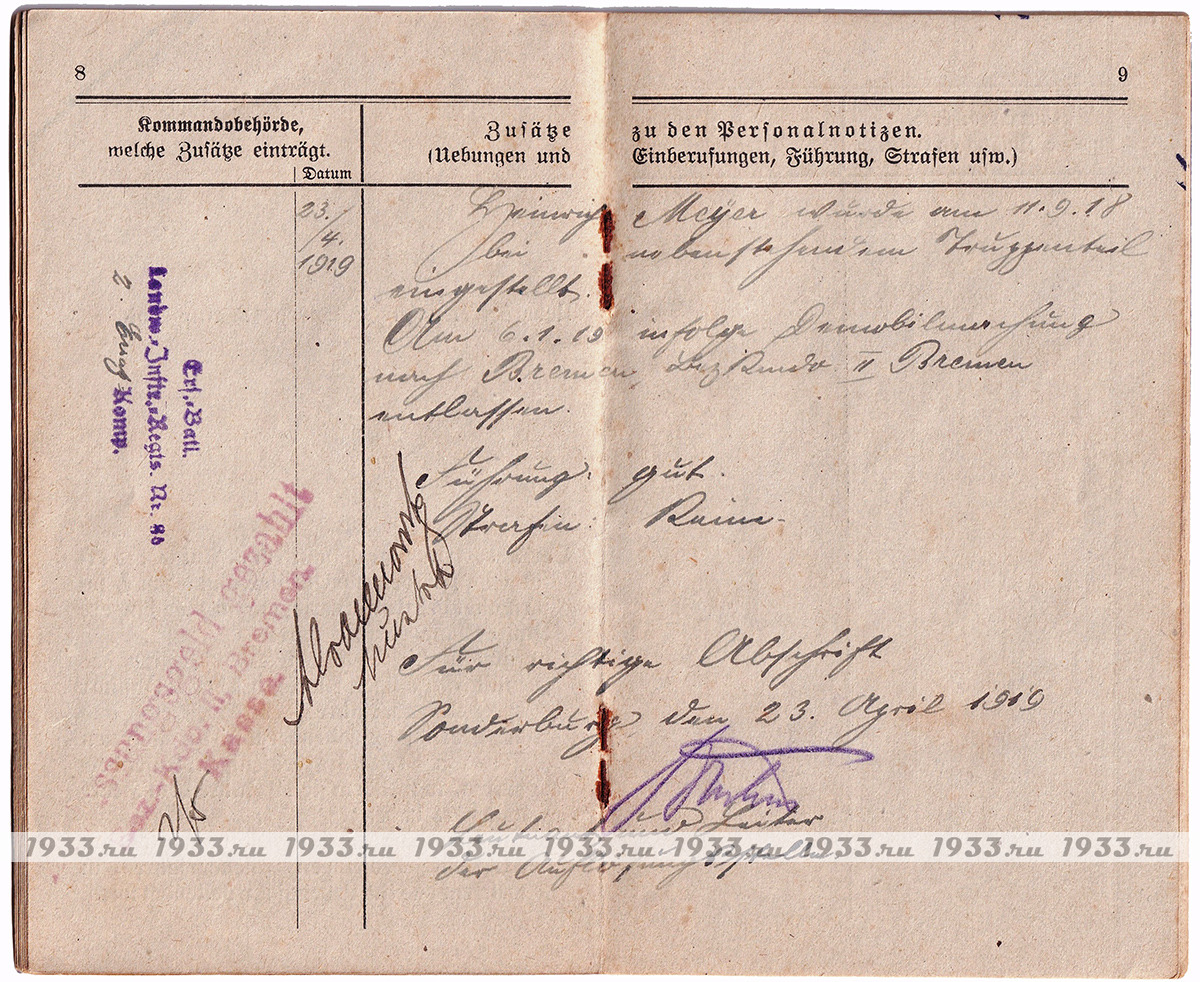 8
9
Kommandobehörde,
welche Zusätze einträgt.
Datum
Zusätze zu den Personalnotizen.
(Uebungen und Einberufungen, Führung, Strafen usw.)
23./
4.
1919
Heinrich Meyer wurde am 11.9.18
bei nebenstehendem Truppenteil
eingestellt.
Am 6.1.19 infolge Demobilmachung
nach Bremen Bez Kmdo II Bremen
entlassen.
Führung: gut.
Strafen: Keine.
Ers.-Batl.
Landw.-Inftr.-Regts. Nr. 86
2. Komp.
gezahlt
II, Bremen.
Kasse.
Für richtige Abschrift
Sonderburg den 23. April 1919
Leutnant und Leiter
der Auflösungsstelle
1933.ru 1933.ru 1933.ru 1933.ru 1933.ru 1933.ru 1933.ru 1933.ru 1933.ru